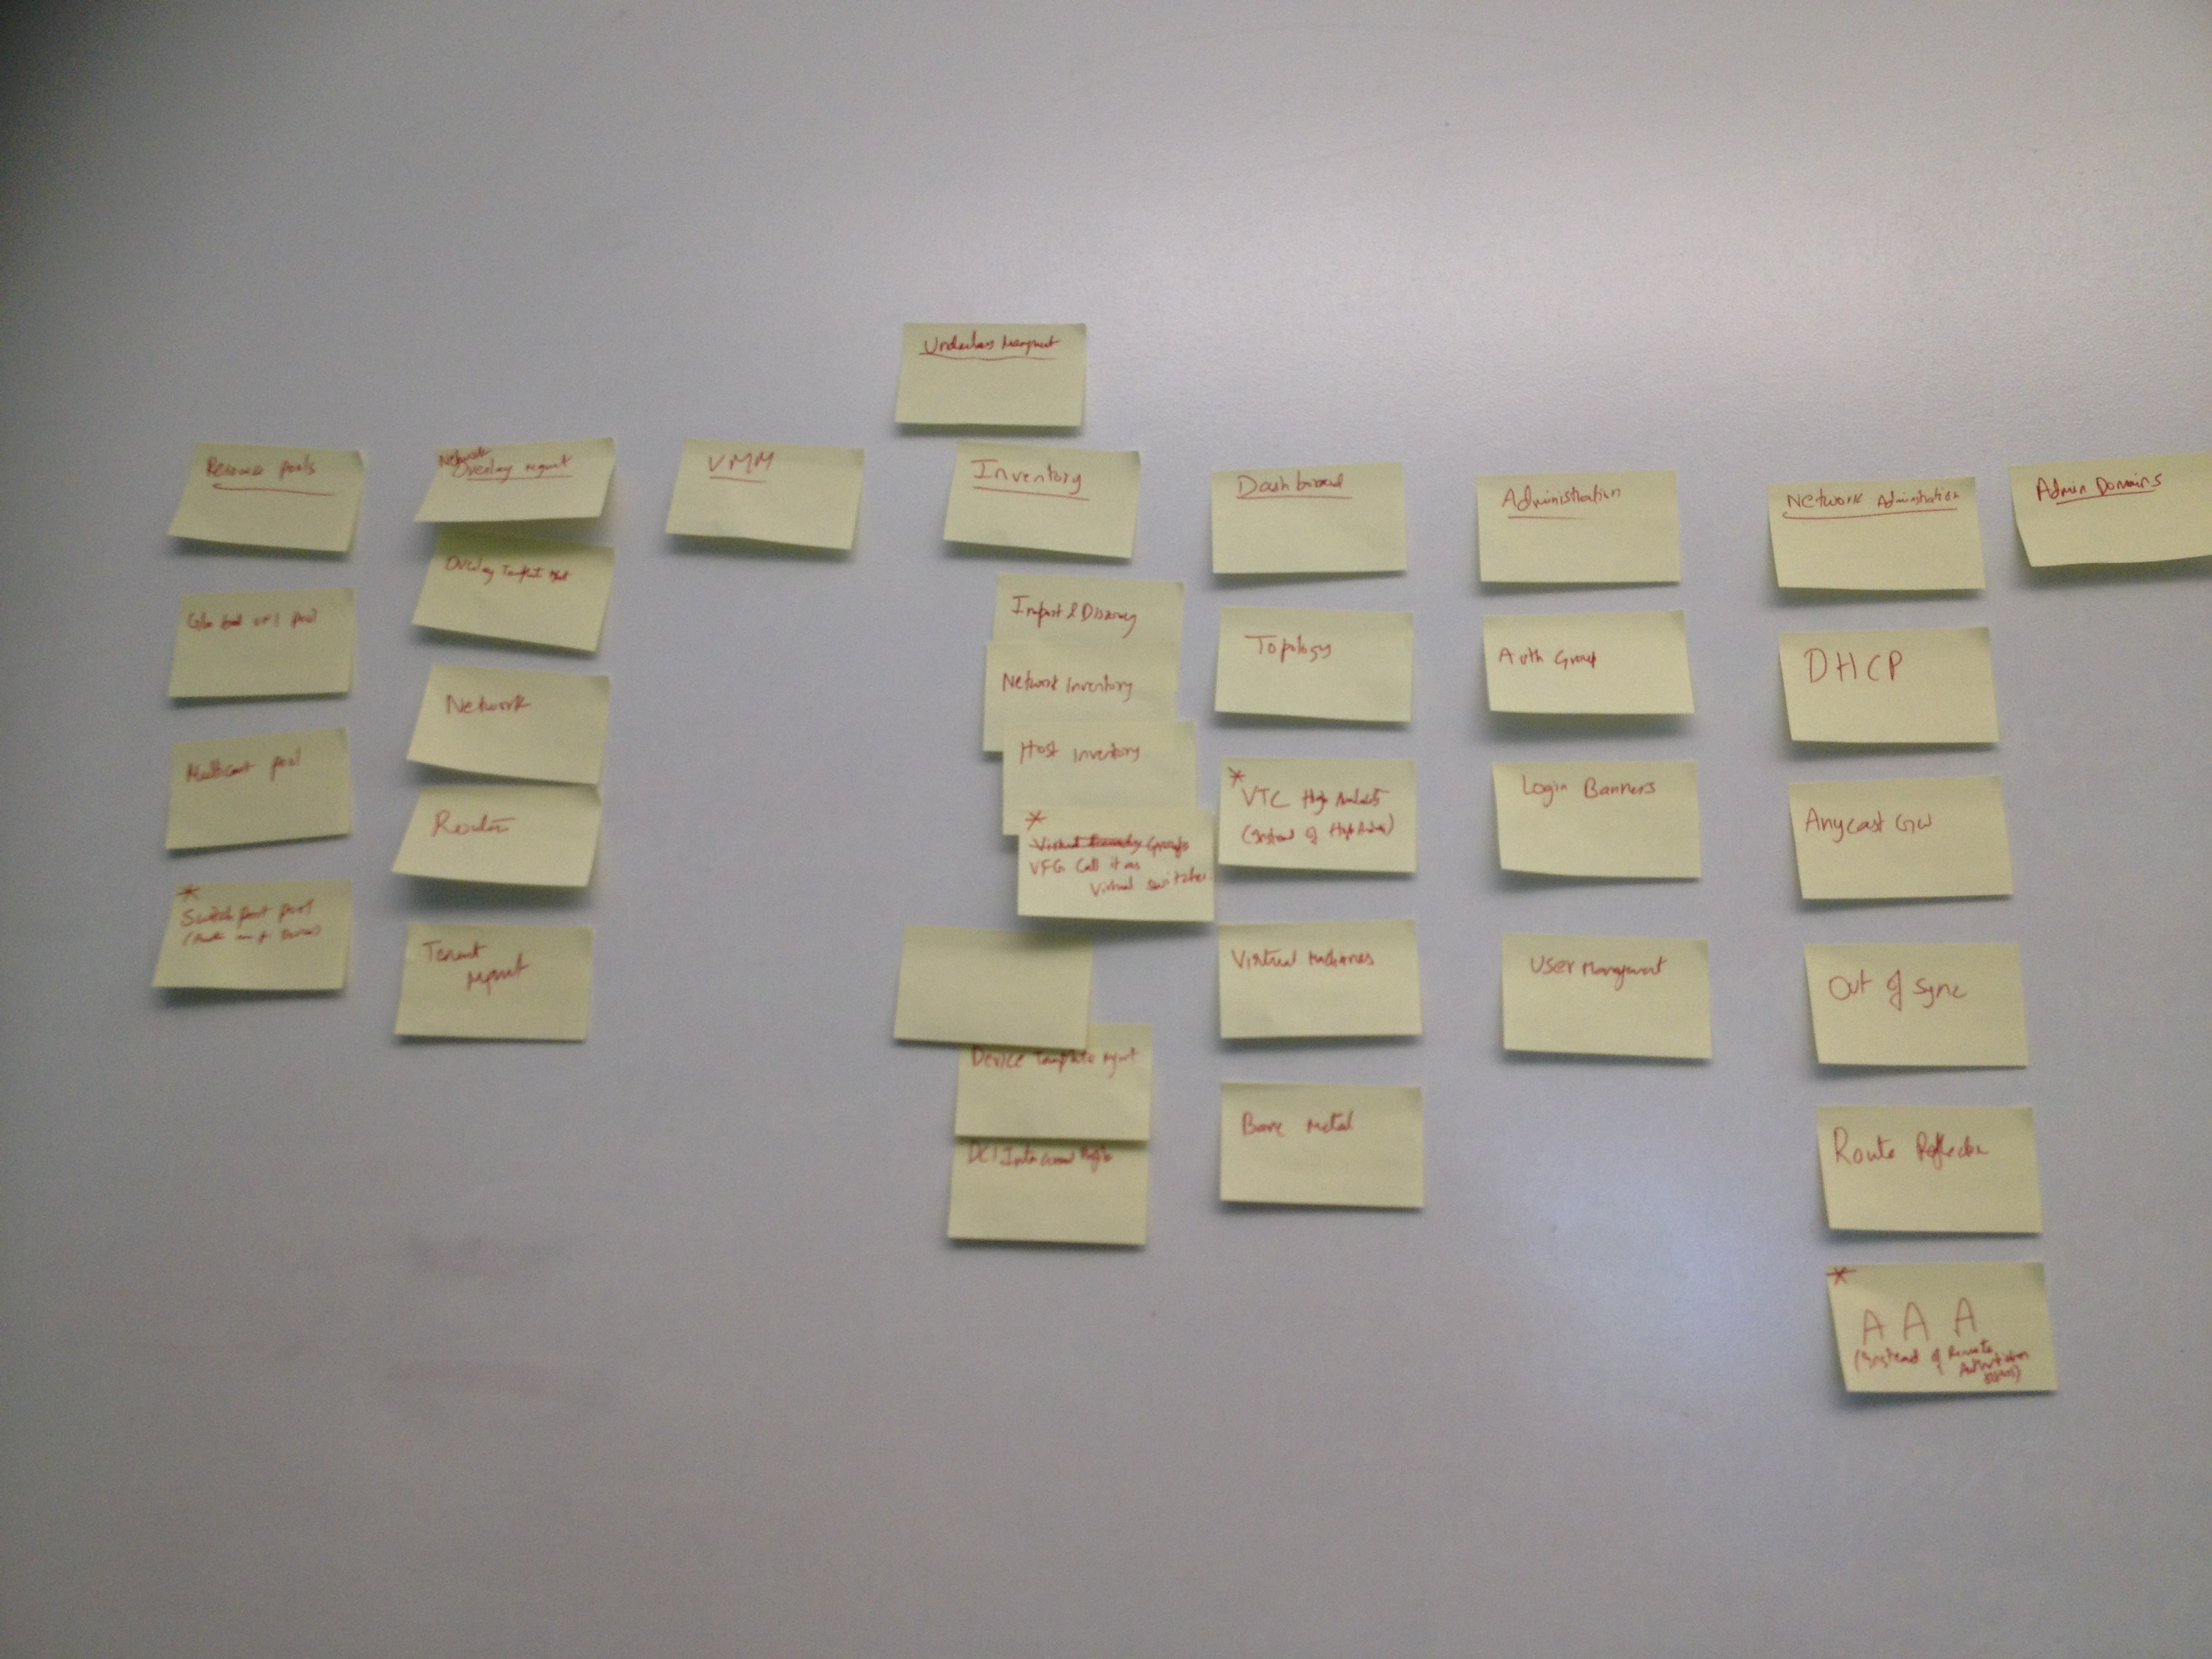 Underlay
Resource pools
Global pool
Multicast pool
*
Switch port pool
Network
Overlay Mgmt
Overlay Mgmt
Network
Router
Tenant
Mgmt
VMM
Inventory
Import & Discovery
Network Inventory
Host Inventory
*
Virtual Groups
VFG Call it as
Virtual switches.
Device Template Mgmt
DCI
Dashboard
Topology
*
VTC High
(Instead of
Virtual Machines
Bare Metal
Administration
Auth Group
Login Banners
User Management
Network Administration
DHCP
Anycast GW
Out of sync
Route Reflector
*
A A A
(Instead of Remote
Admin Domains